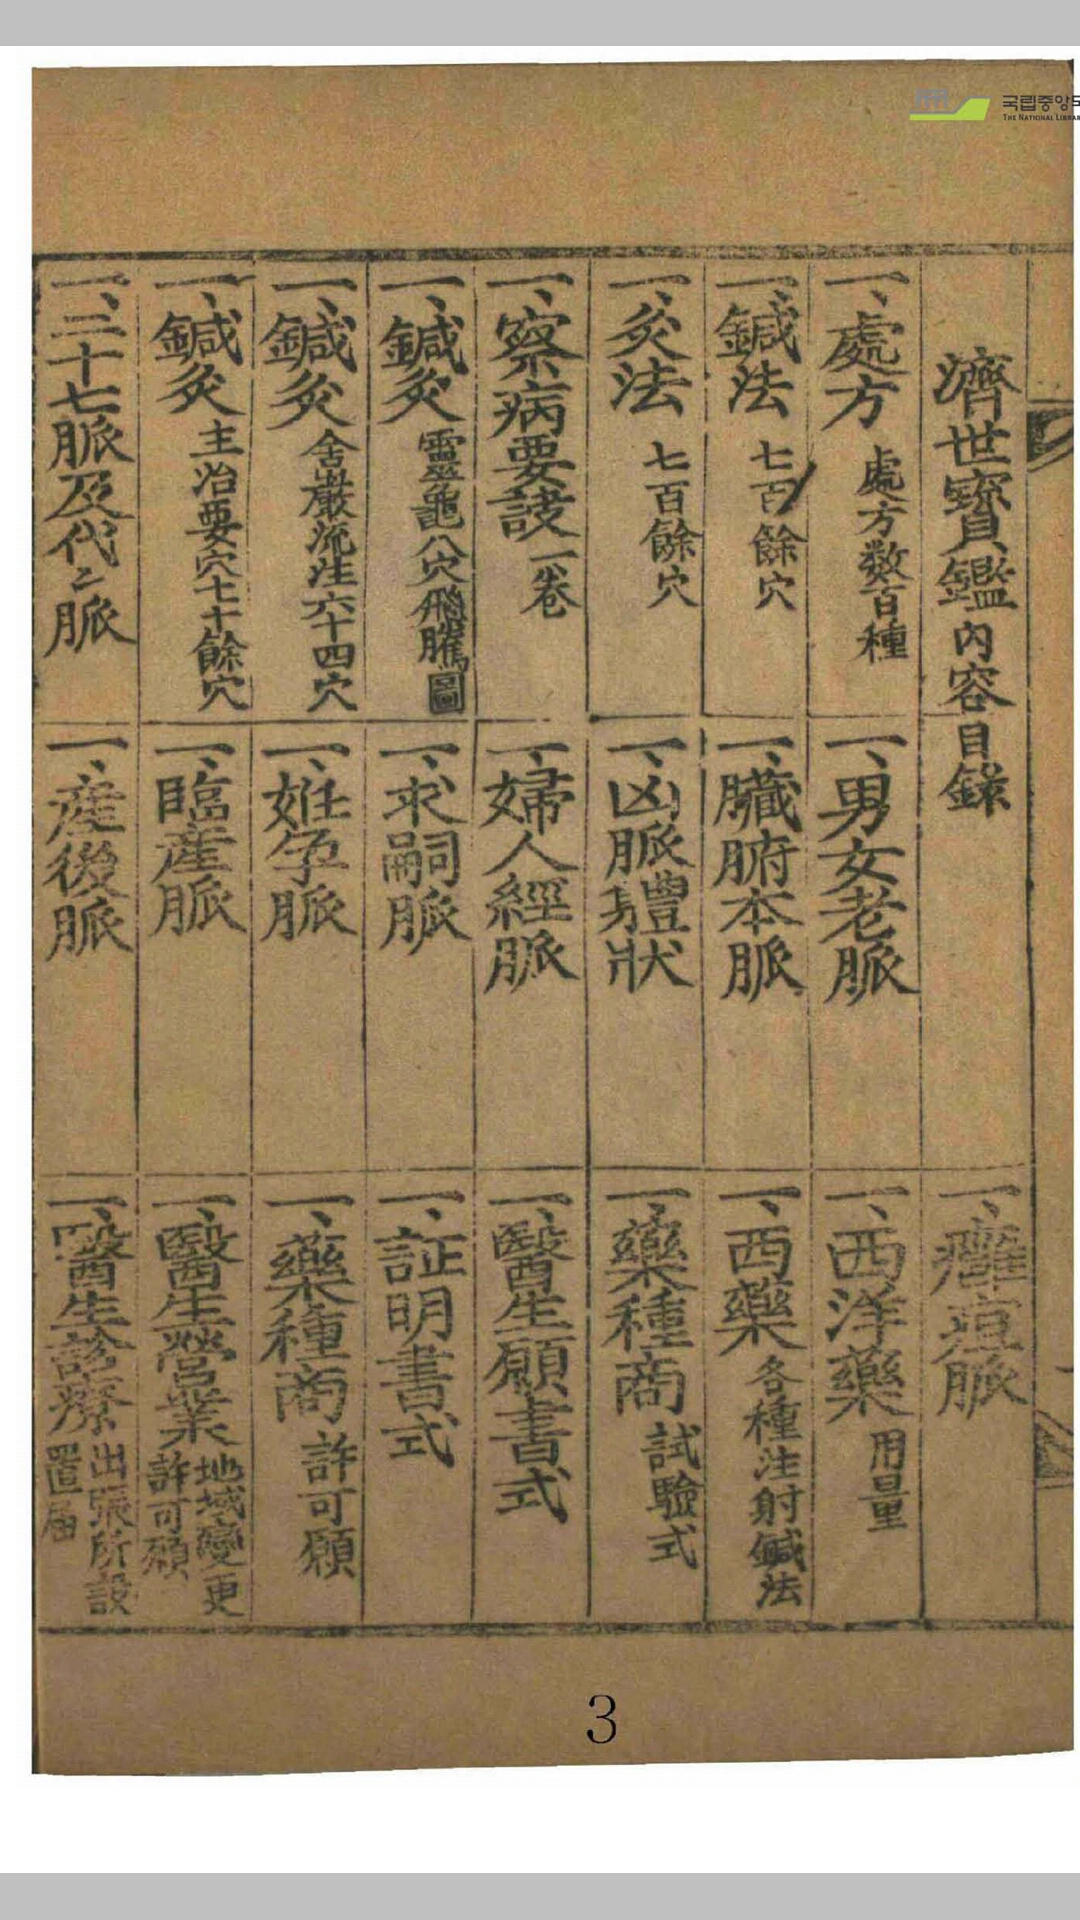 국립중앙도
THE NATIONAL LIBRAR
濟世寶鑑內容目錄
一、處方 處方數百種
一、鍼法 七百餘穴
一、灸法 七百餘穴
一、察病要訣 一卷
一、鍼灸 靈龜八穴飛騰圖
一、鍼灸 舍巖流注六十四穴
一、鍼灸 主治要穴七十餘穴
一、二十七脈及代二脈
一、男女老脈
一、臟腑本脈
一、凶脈體狀
一、婦人經脈
一、求嗣脈
一、姙孕脈
一、臨産脈
一、産後脈
一、癰疽脈
一、西洋藥 用量
一、西藥 各種注射鍼法
一、藥種商 試驗式
一、醫生願書式
一、証明書式
一、藥種商 許可願
一、醫生營業 地域變更許可願
一、醫生診療 出張所設置届
3